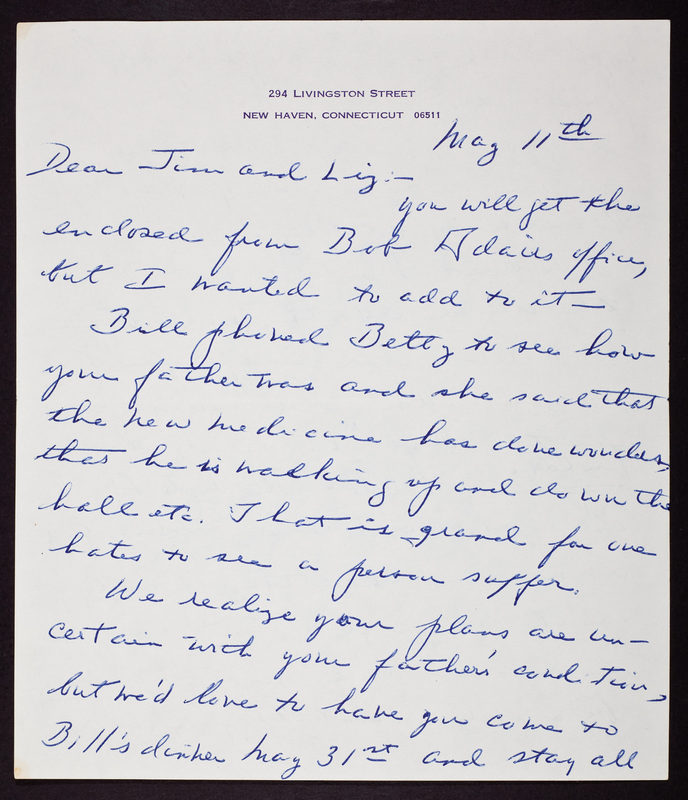 294 LIVINGSTON STREET
NEW HAVEN, CONNECTICUT 06511
May 11th
Dear Jim and Liz:—
you will get the
enclosed from Bob Adair's office,
but I wanted to add to it—
Bill phoned Betty to see how
your father was and she said that
the new medicine has done wonders,
that he is walking up and down the
hall etc. That is grand for one
hates to see a person suffer.
We realize your plans are un-
certain with your father's condition,
but we'd love to have you come to
Bill's dinner May 31st and stay all